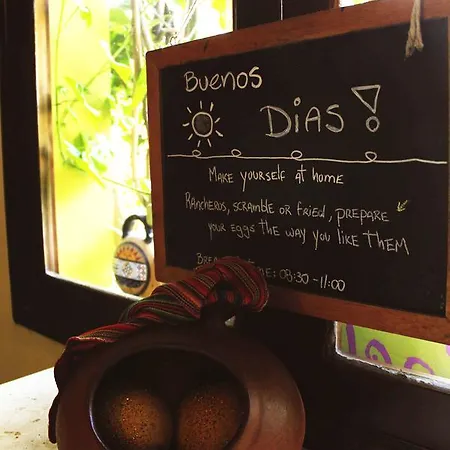 Buenos
Dias!
Make yourself at home
Rancheros, scramble or fried, prepare
your eggs the way you like them
08:30-11:00